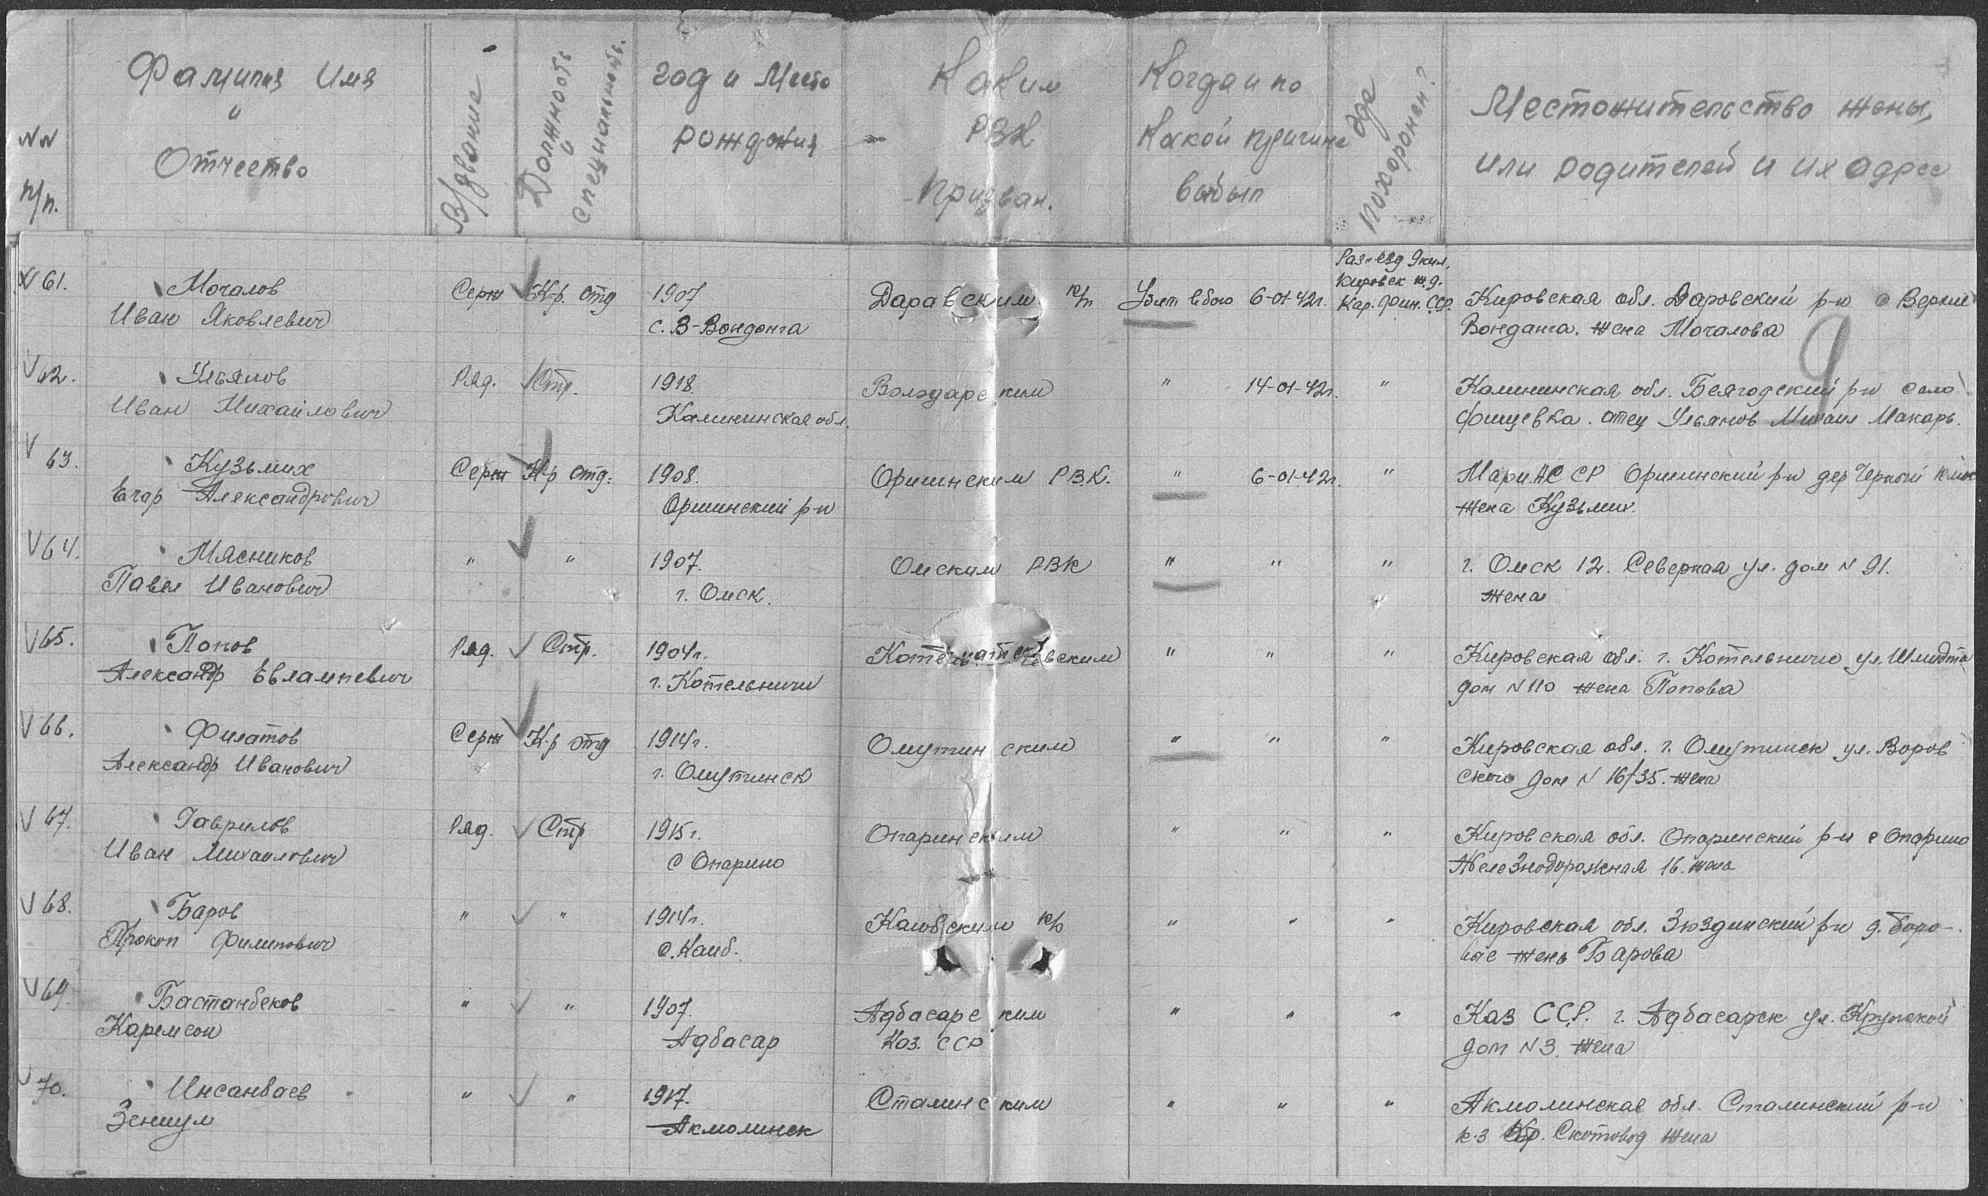 NN п/п.
Фамилия Имя и Отчество
В/звание
Должность и специальность.
год и Место рождения
Каким РВК Призван.
Когда и по какой причине выбыл
где похоронен?
Местожительство жены, или родителей и их адрес
61. Мочалов Серж Кр. отд 1907 Даравским Убит в бою 6-01-42г. Раз-езд 9 кил. Кировск ж.д. Кар. Фин. ССР. Кировская обл. Даровский р-н
Иван Яковлевич с. В-Вондонга Вонданга. жена Мочалова
62. Ульянов Ряд. Стр. 1918 Володарским " 14-01-42г. " Калининская обл. р-н село
Иван Михайлович Калининская обл. отец Ульянов Михаил Макарь.
63. Кузьмих Серж Кр отд. 1908. Оршинским РВК. " 6-01-42г. " Мари АССР Оршинский р-н дер Черный
Егор Александрович Оршинский р-н жена Кузьмих.
64. Мясников " " 1907. Омским РВК " " " г. Омск 12. Северная ул. дом N 91.
Павел Иванович г. Омск. жена
65. Попов Ряд. Стр. 1904г. " " " Кировская обл. г. Котельничи ул. Шмидта
Александр Евлампевич г. Котельничи дом N 110 жена Попова
66. Филатов Серж Кр отд 1914г. Омутнинским " " " Кировская обл. г. Омутнинск ул. Воров
Александр Иванович г. Омутнинск ского дом N 16/35. жена
67. Гаврилов Ряд. Стр 1915г. Опаринским " " " Кировская обл. Опаринский р-н с Опарино
Иван Михаилович с Опарино Железнодорожная 16. жена
68. Баров " " 1914г. " " " Кировская обл. Зюздинский р-н д. Боро-
Прокоп Филипович жена Барова
69. Бастанбеков " " 1907. Адбасарским " " " Каз ССР. г. Адбасарск ул. Крупской
Адбасар Каз. ССР дом N 3. жена
70. Инсанбаев " " 1917. Сталинским " " " Акмолинская обл. Сталинский р-н
Акмолинск к-з Кр. Скотовод жена